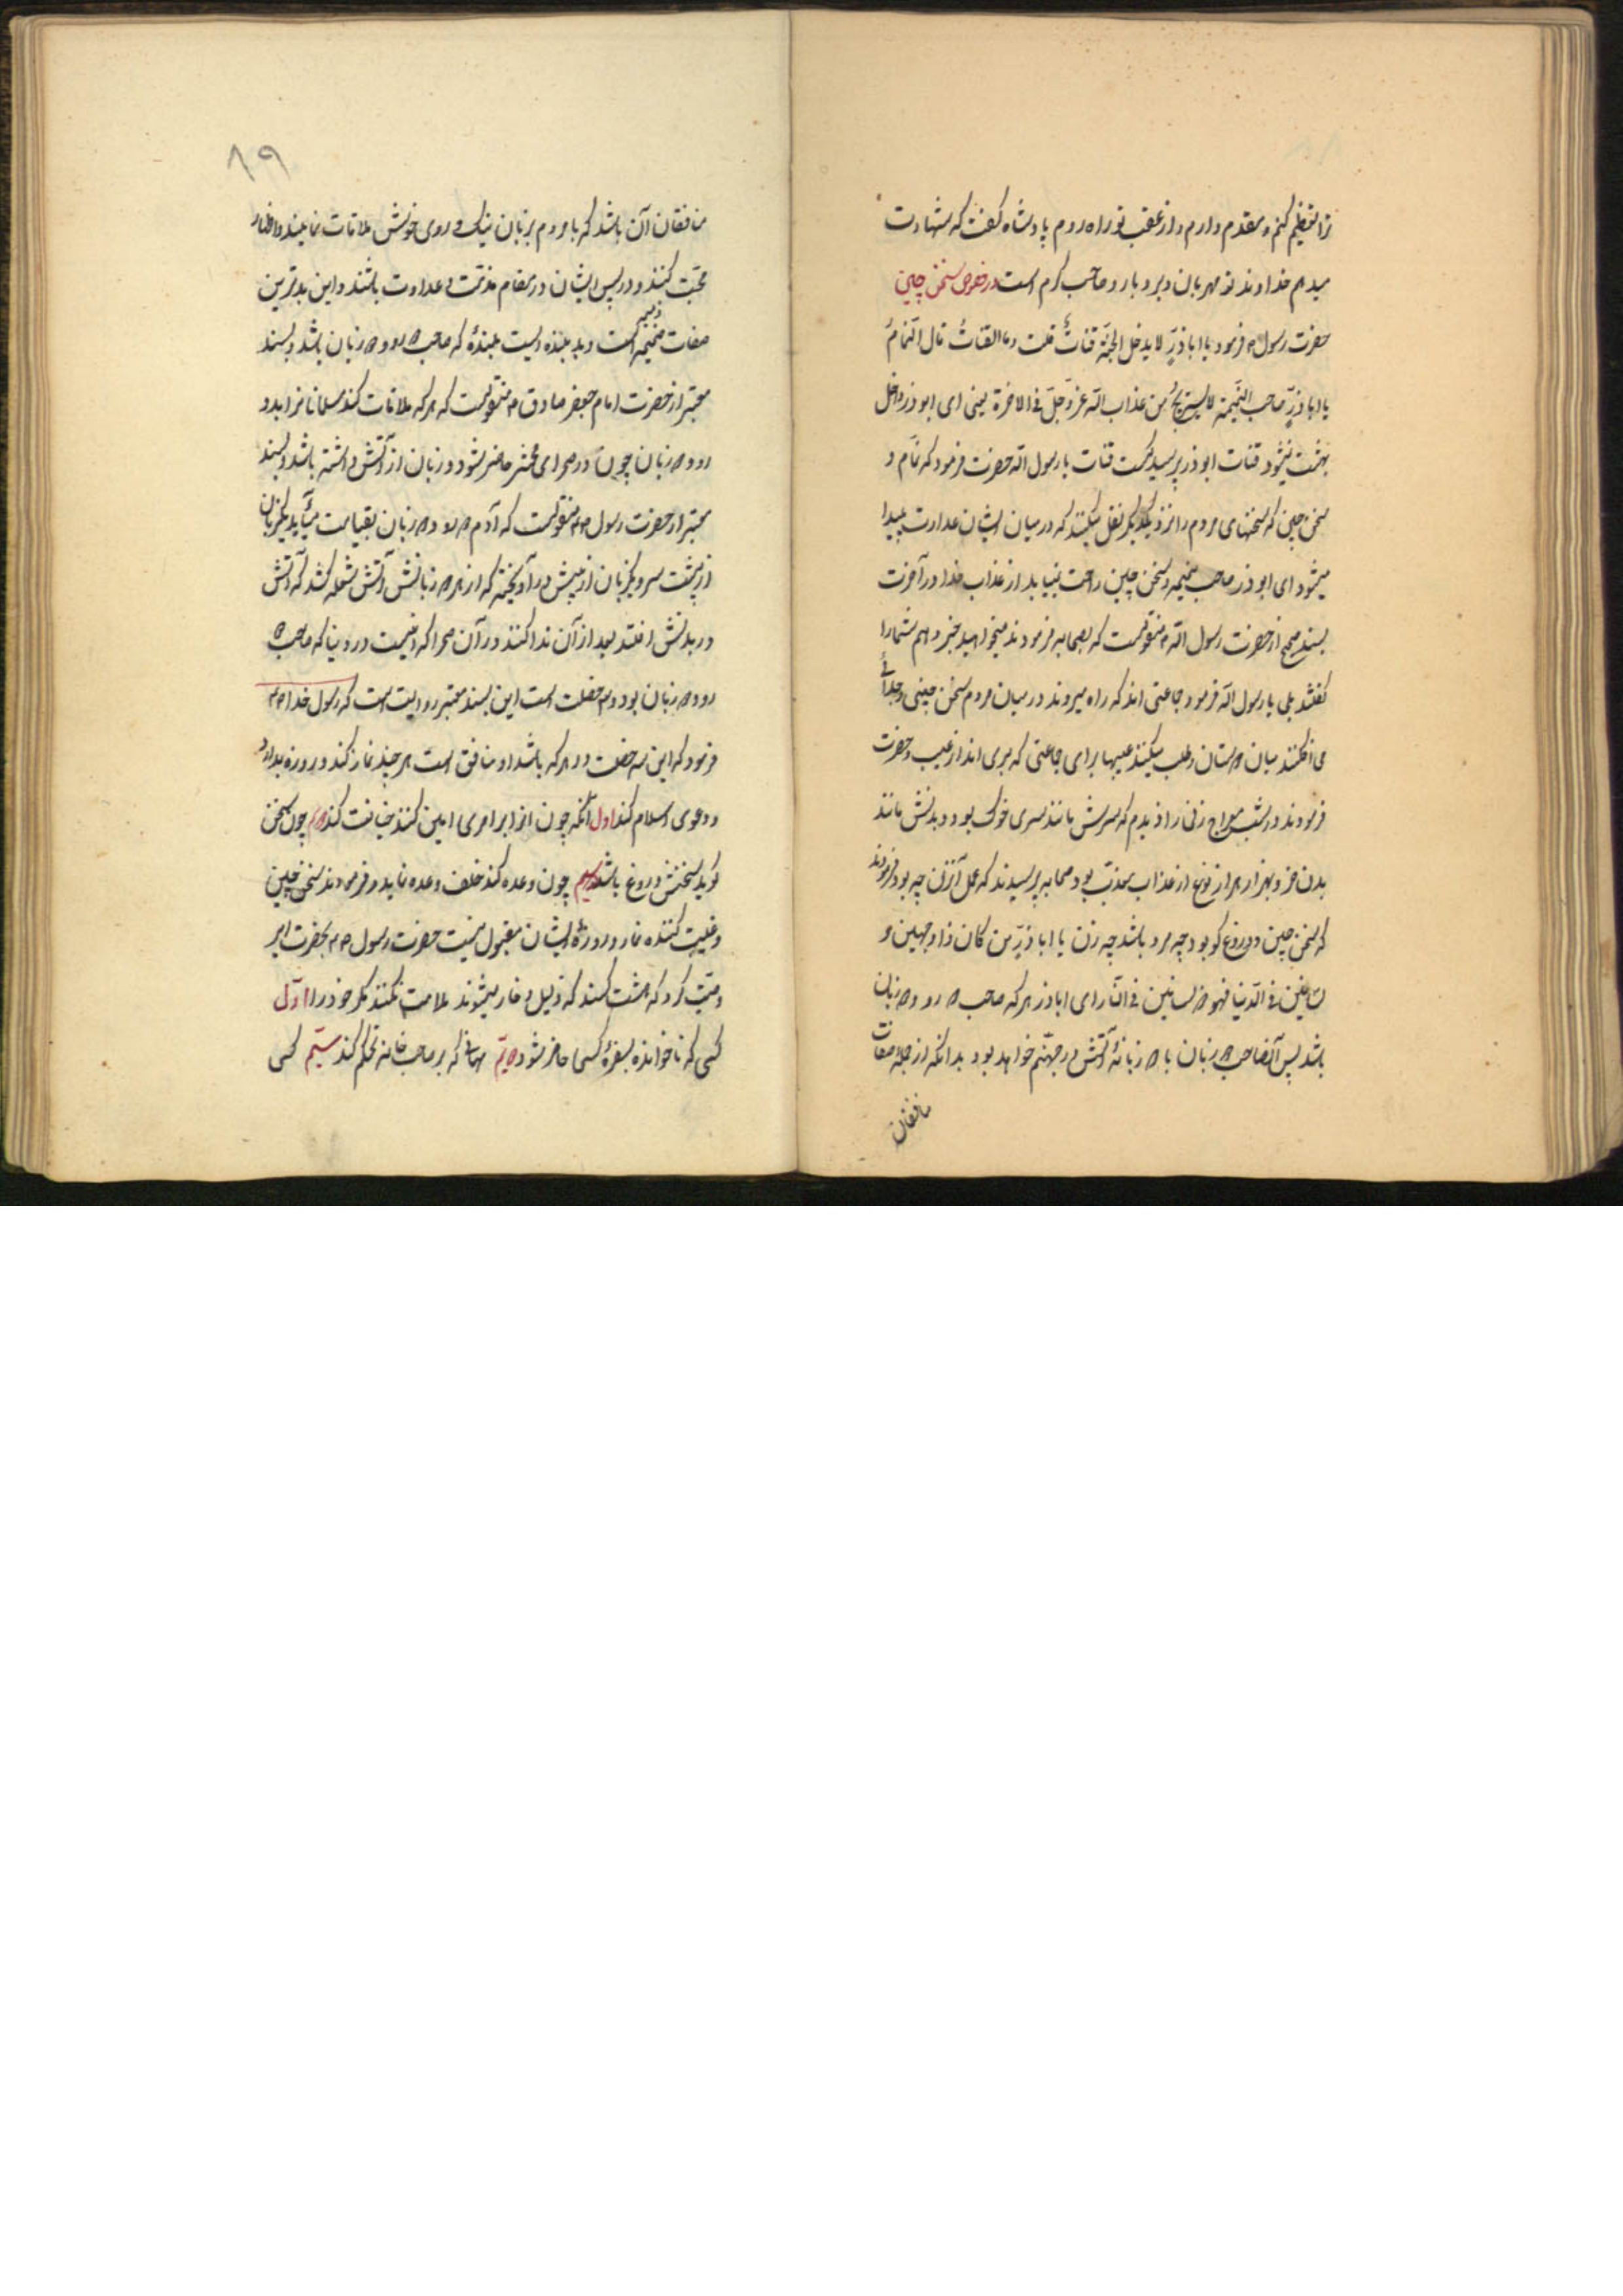 ترا تعظیم کنم و مقدم دارم و از عقب تو راه روم پادشاه گفت که شهادت
میدهم خداوند تو مهربان و بردبار و صاحب کرم است در خصوص سخن چینی
حضرت رسول ص فرمود یا ابا ذرٍّ لا یدخل الجنّة قتاتٌ قلت وما القتاتُ قال النّمامُ
یا ابا ذرٍّ صاحب النّمیمة لا یستریحُ من عذاب اللّه عزّ وجلّ فی الاخرة یعنی ای ابوذر داخل
بهشت نمیشود قتات ابوذر پرسید کیست قتات یا رسول اللّه حضرت فرمود که نمّام و
سخن چین که سخنهای مردم را نزد یکدیگر نقل میکند که در میان ایشان عداوت پیدا
میشود ای ابوذر صاحب نمیمه و سخن چین راحت نمیابد از عذاب خدا در آخرت
بسند صحیح از حضرت رسول اللّه ص منقولست که بصحابه فرمودند میخواهید خبر دهم شما را
گفتند بلی یا رسول اللّه فرمود جماعتی اند که راه میروند در میان مردم سخن چینی و جدائی
می افکنند میان دوستان و طلب میکنند عیبها برای جماعتی که بری اند از عیب و حضرت
فرمودند در شب معراج زنی را دیدم که سرش مانند سری خوک بود و بدنش مانند
بدن خر و بهزار هزار نوع از عذاب معذّب بود صحابه پرسیدند که عمل آنزن چه بود فرمودند
که سخن چین و دروغ گو بود چه مرد باشد چه زن یا ابا ذرٍّ من کان ذا وجهین و
لسانین فی الدّنیا فهو ذو لسانین فی النّار ای اباذر هرکه صاحب دو رو و دو زبان
باشد پس آنصاحب دو زبان با دو زبانهٔ آتش در جهنّم خواهد بود بدانکه از جمله صفات
منافقان
۸۹
منافقان آن باشد که با مردم بزبان نیک و روی خوش ملاقات نمایند و اظهار
محبّت کنند و در پس ایشان در مقام مذمّت و عداوت باشند و این بدترین
صفات ذمیمه است و بد بنده ایست بندهٔ که صاحب دو رو و دو زبان باشد و بسند
معتبر از حضرت امام جعفر صادق ع منقولست که هرکه ملاقات کند مسلمانان را بدو
رو و دو زبان چون در صحرای محشر حاضر شود دو زبان از آتش داشته باشد و بسند
معتبر از حضرت رسول ص منقولست که آدم دو رو و دو زبان بقیامت میآید یکزبان
از پشت سر و یکزبان از پیش در آویخته که از هر دو زبانش آتش شعله کشد که آتش
در بدنش افتد بعد از آن ندا کنند در آن صحرا که اینست در دنیا که صاحب دو
رو و دو زبان بود و سه خصلت است این بسند معتبر روایت است که رسول خدا ص
فرمود که این سه خصلت در هرکه باشد او منافق است هر چند نماز کند و روزه بدارد
و دعوی اسلام کند اول آنکه چون او را بر امری امین کنند خیانت کند دوم چون سخن
گوید سخنش دروغ باشد سیم چون وعده کند خلف وعده نماید و فرمودند سخن چین
و غیبت کننده نماز و روزهٔ ایشان مقبول نیست حضرت رسول ص بحضرت امیر
وصیّت کرد که هشت کسند که ذلیل و خار میشوند ملامت نکنند مگر خود را اوّل
کسی که ناخوانده بسفرهٔ کسی حاضر شود دویّم مهمانی که بر صاحب خانه تحکم کند سیّم کسی